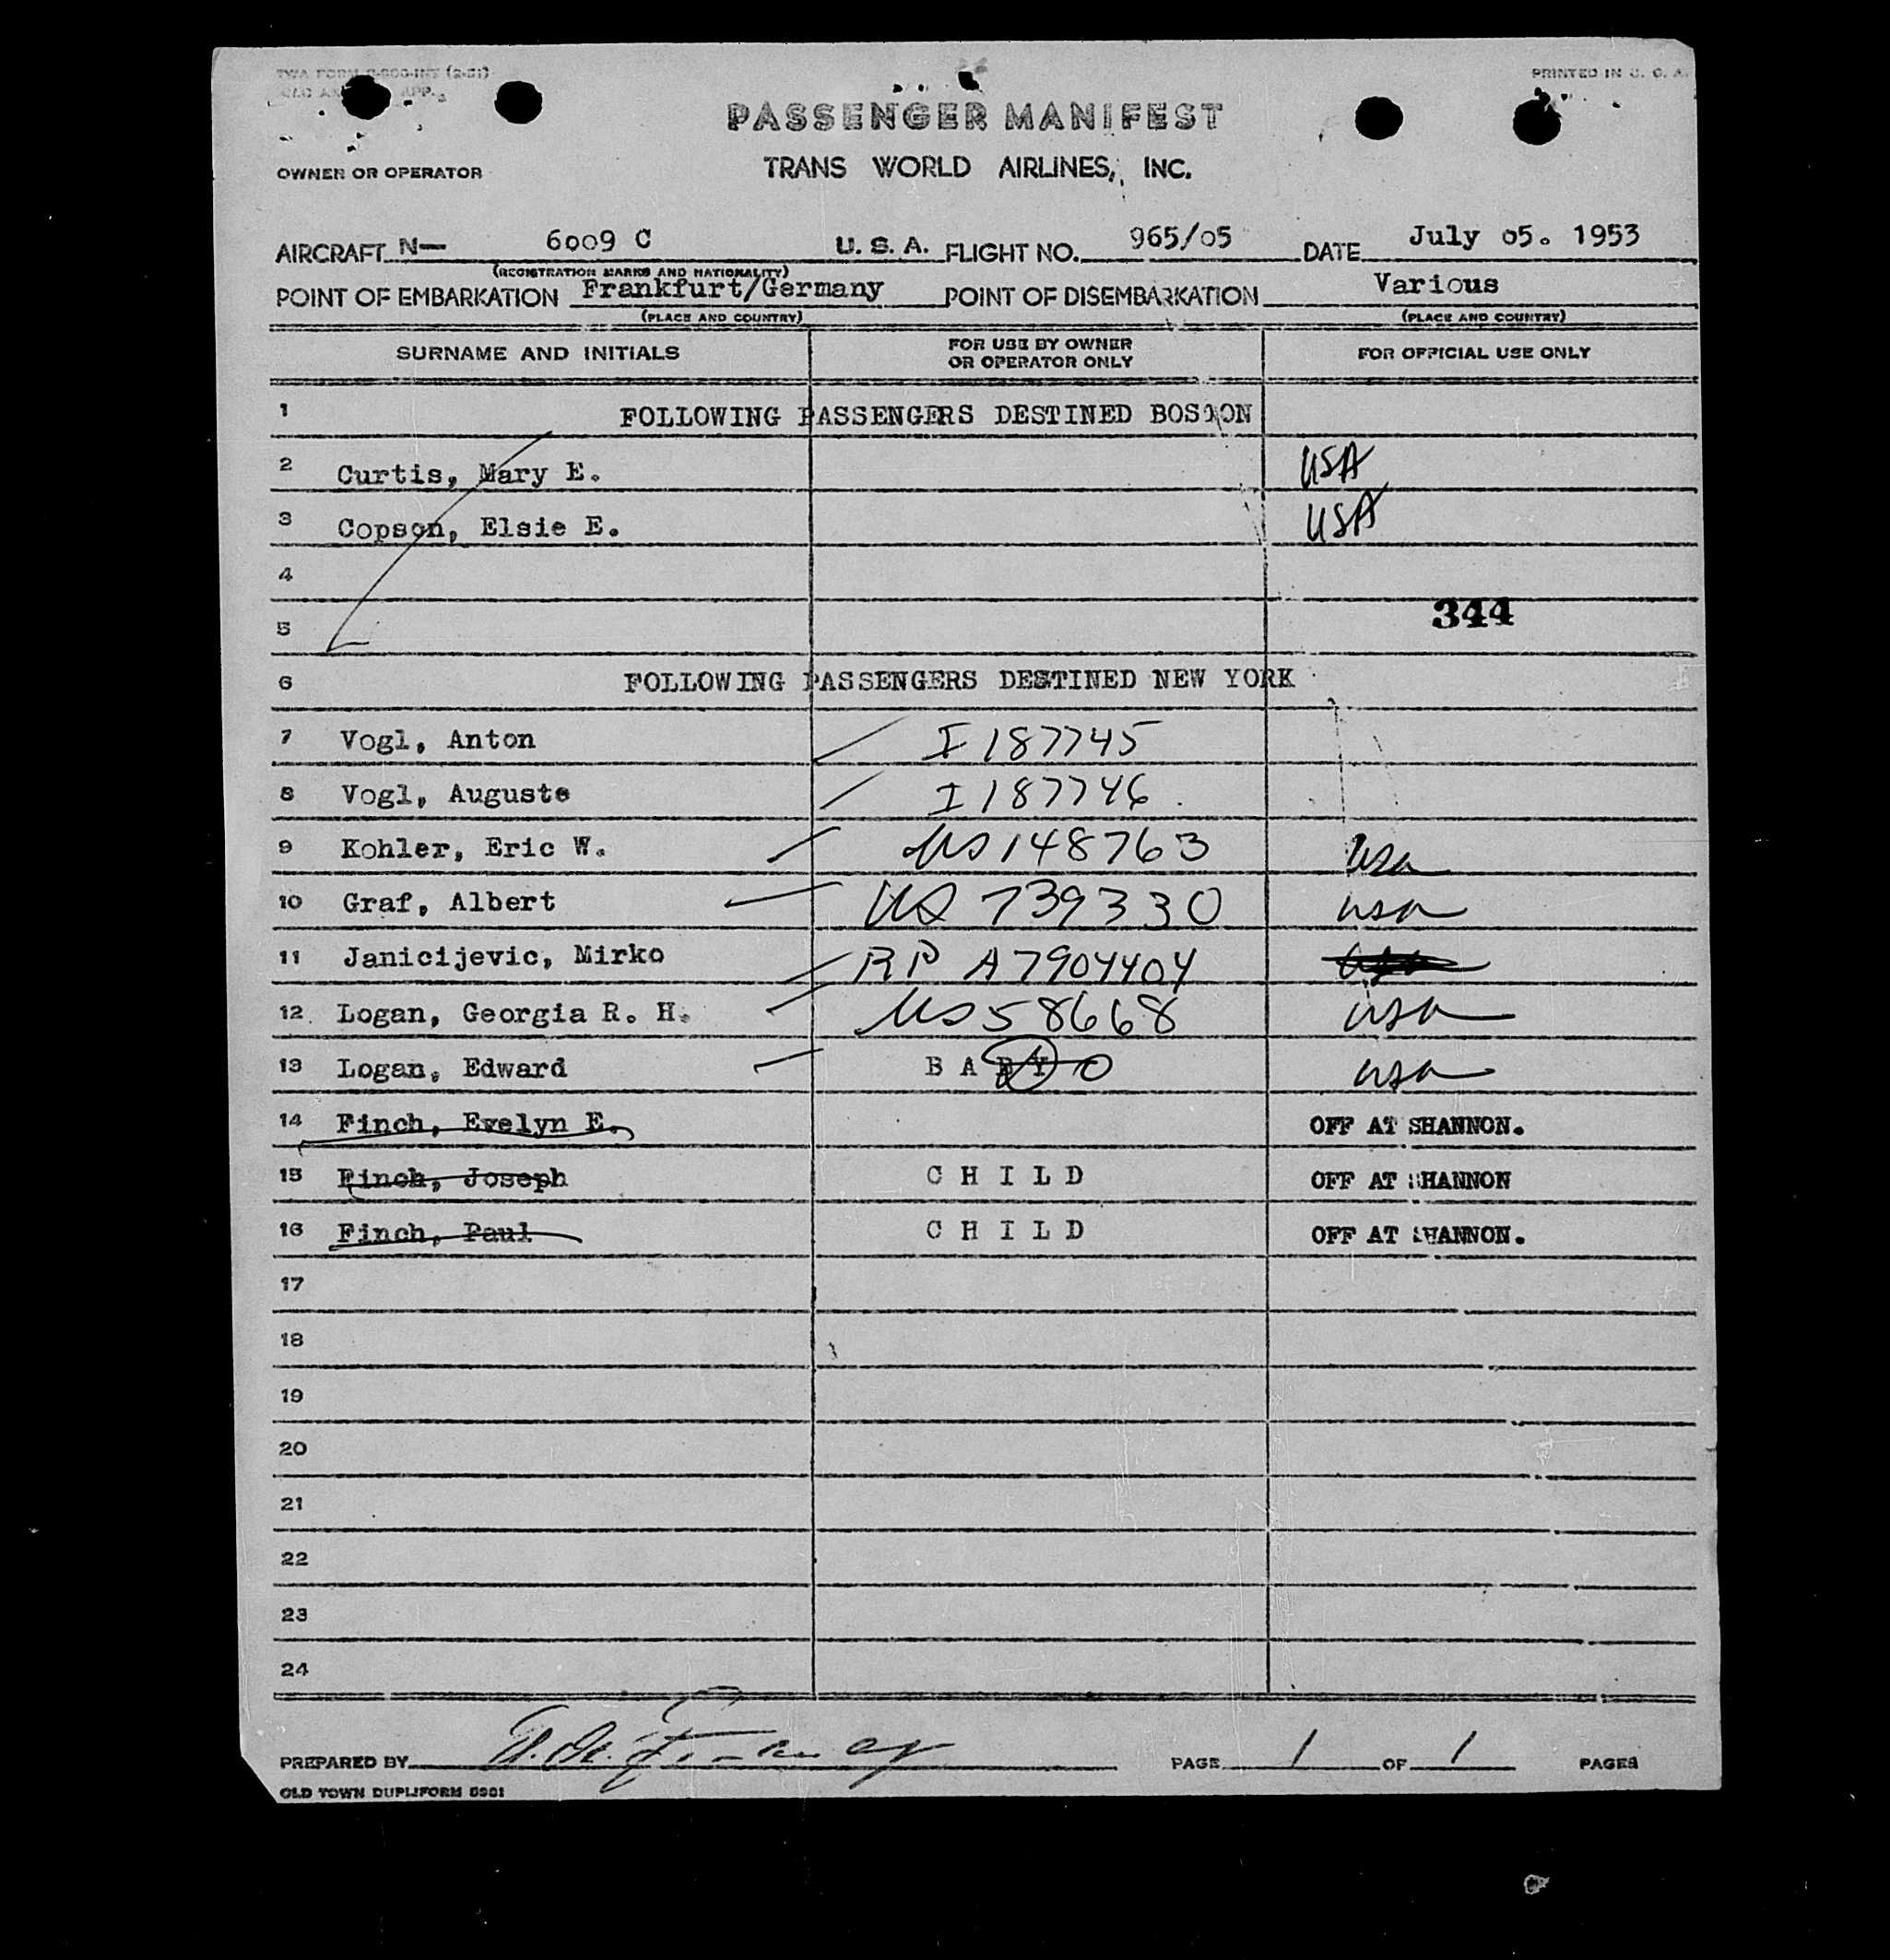 TWA FORM
PRINTED IN U. S. A.
PASSENGER MANIFEST
OWNER OR OPERATOR
TRANS WORLD AIRLINES, INC.
AIRCRAFT N— 6009 C U. S. A. FLIGHT NO. 965/05 DATE July 05. 1953
(REGISTRATION MARKS AND NATIONALITY)
POINT OF EMBARKATION Frankfurt/Germany POINT OF DISEMBARKATION Various
(PLACE AND COUNTRY) (PLACE AND COUNTRY)
SURNAME AND INITIALS FOR USE BY OWNER OR OPERATOR ONLY FOR OFFICIAL USE ONLY
1 FOLLOWING PASSENGERS DESTINED BOSTON
2 Curtis, Mary E. USA
3 Copson, Elsie E. USA
4
5 344
6 FOLLOWING PASSENGERS DESTINED NEW YORK
7 Vogl, Anton I 187745
8 Vogl, Auguste I 187746
9 Kohler, Eric W. US 148763 usa
10 Graf, Albert US 739330 usa
11 Janicijevic, Mirko RP A7904404 usa
12 Logan, Georgia R. H. US 58668 usa
13 Logan, Edward B A B Y usa
14 Finch, Evelyn E. OFF AT SHANNON.
15 Finch, Joseph C H I L D OFF AT SHANNON
16 Finch, Paul C H I L D OFF AT SHANNON.
17
18
19
20
21
22
23
24
PREPARED BY PAGE 1 OF 1 PAGES
OLD TOWN DUPLIFORM 5981